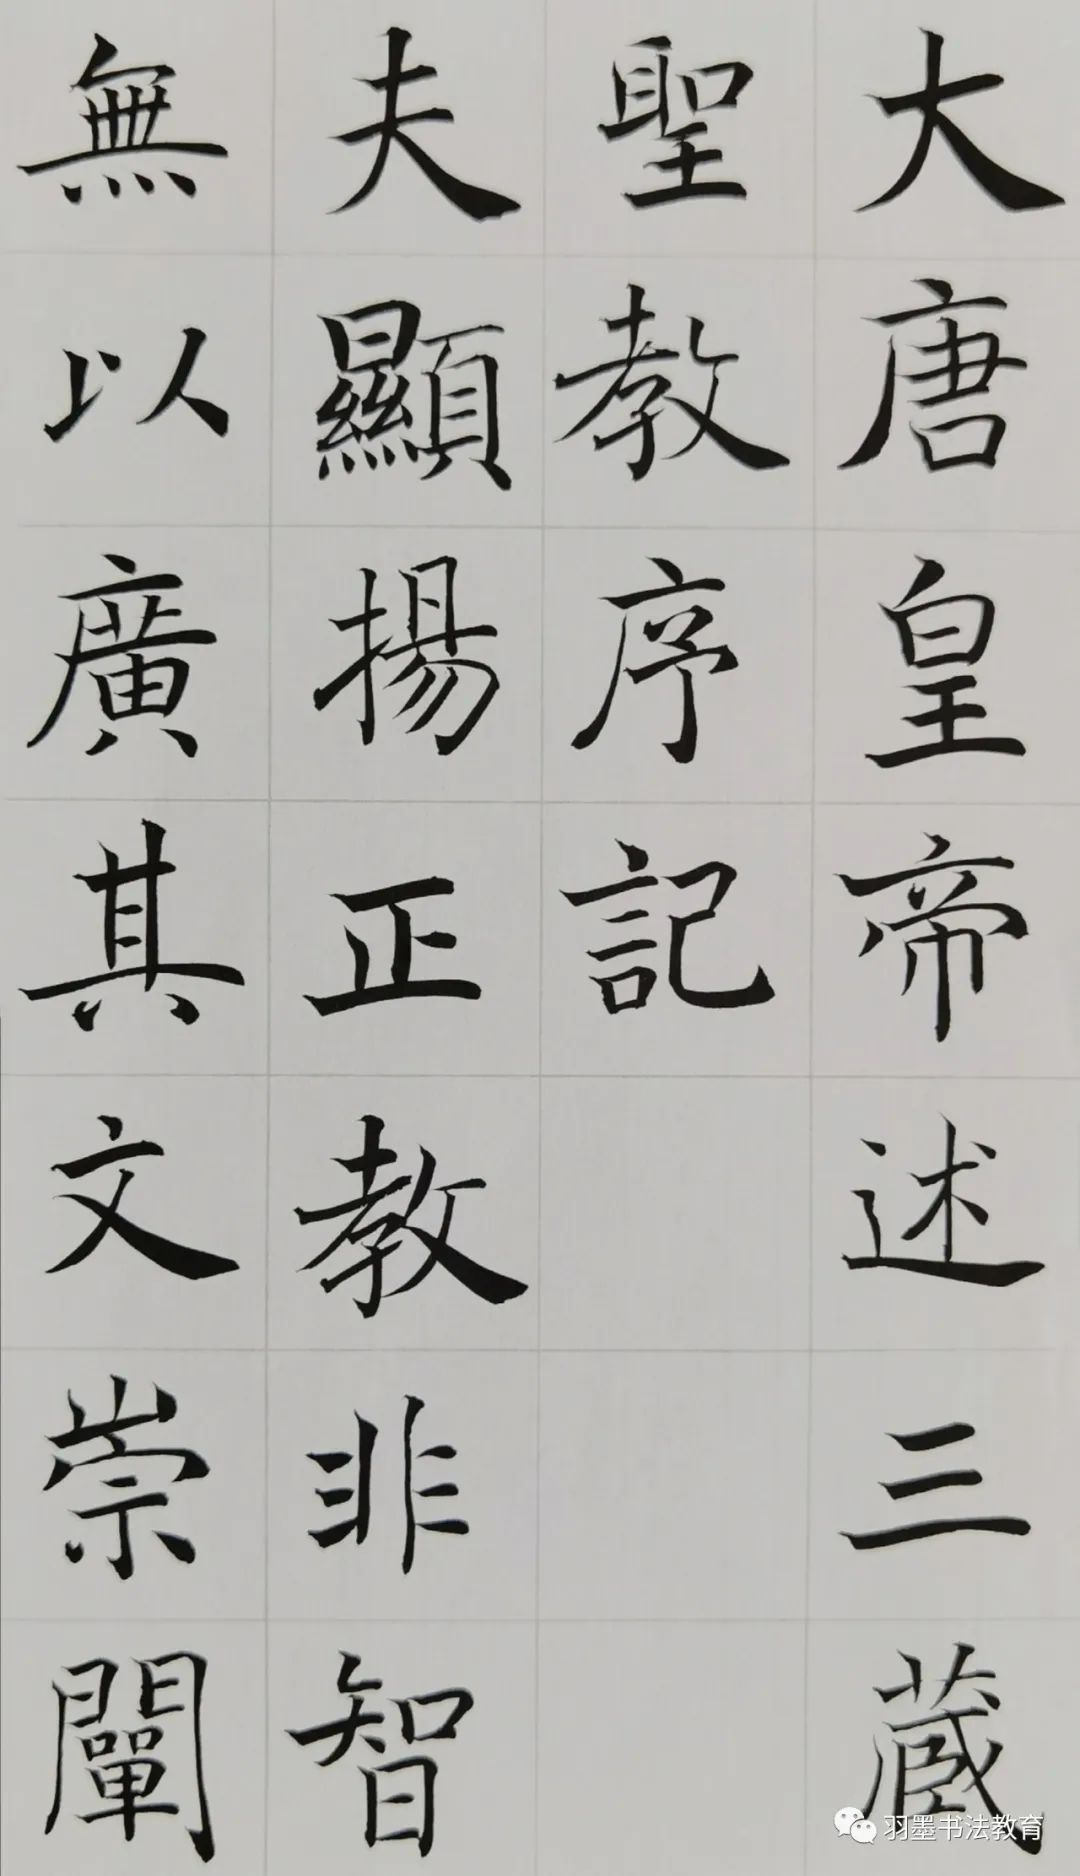 大唐皇帝述三藏
聖教序記
夫顯揚正教非智
無以廣其文崇闡
羽墨书法教育